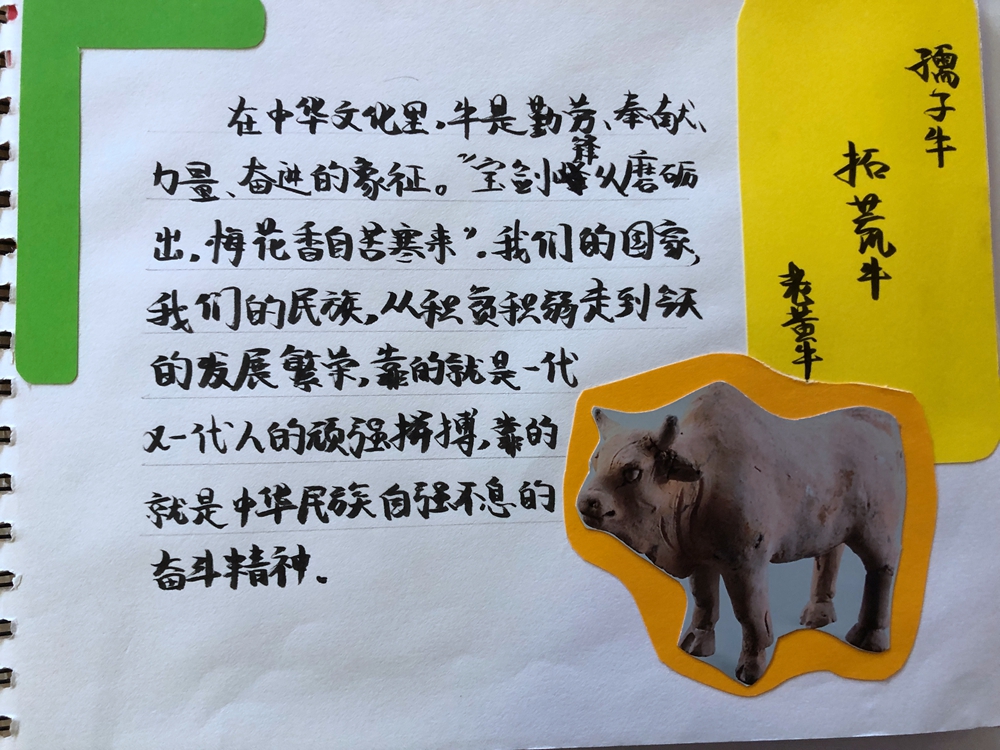 在中华文化里,牛是勤劳、奉献、
力量、奋进的象征。“宝剑锋从磨砺
出,梅花香自苦寒来”.我们的国家,
我们的民族,从积贫积弱走到今天
的发展繁荣,靠的就是一代
又一代人的顽强拼搏,靠的
就是中华民族自强不息的
奋斗精神.
孺子牛
拓荒牛
老黄牛